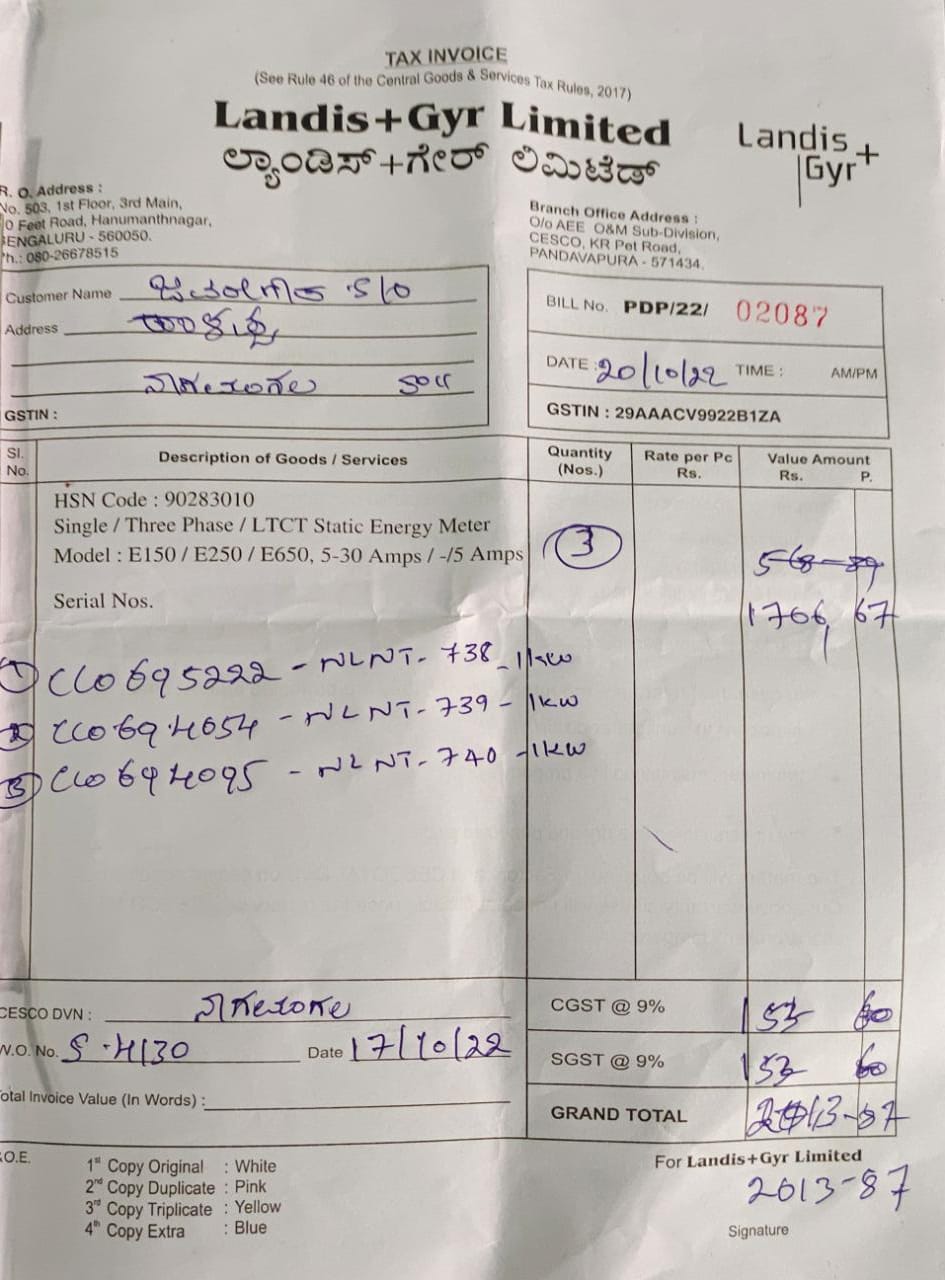 TAX INVOICE
(See Rule 46 of the Central Goods & Services Tax Rules, 2017)
Landis+Gyr Limited
ಲ್ಯಾಂಡಿಸ್+ಗೇರ್ ಲಿಮಿಟೆಡ್
Landis+
Gyr
R. O. Address :
No. 503, 1st Floor, 3rd Main,
0 Feet Road, Hanumanthnagar,
BENGALURU - 560050.
Ph.: 080-26678515
Branch Office Address :
O/o AEE O&M Sub-Division,
CESCO, KR Pet Road,
PANDAVAPURA - 571434.
Customer Name S/O
Address
GSTIN :
BILL No. PDP/22/ 02087
DATE : 20/10/22 TIME : AM/PM
GSTIN : 29AAACV9922B1ZA
Sl. No. Description of Goods / Services Quantity (Nos.) Rate per Pc Rs. Value Amount Rs. P.
HSN Code : 90283010
Single / Three Phase / LTCT Static Energy Meter
Model : E150 / E250 / E650, 5-30 Amps / -/5 Amps 3 568-89
Serial Nos. 1706, 67
1 CL0695222 - NLNT- 738 - 1kw
2 CL0694054 - NLNT- 739 - 1kw
3 CL0694095 - NLNT- 740 - 1kw
CESCO DVN :
W.O. No. S-4130 Date 17/10/22
Total Invoice Value (In Words) :
CGST @ 9% 153 60
SGST @ 9% 153 60
GRAND TOTAL 2013-87
E.O.E.
1st Copy Original : White
2nd Copy Duplicate : Pink
3rd Copy Triplicate : Yellow
4th Copy Extra : Blue
For Landis+Gyr Limited
2013-87
Signature